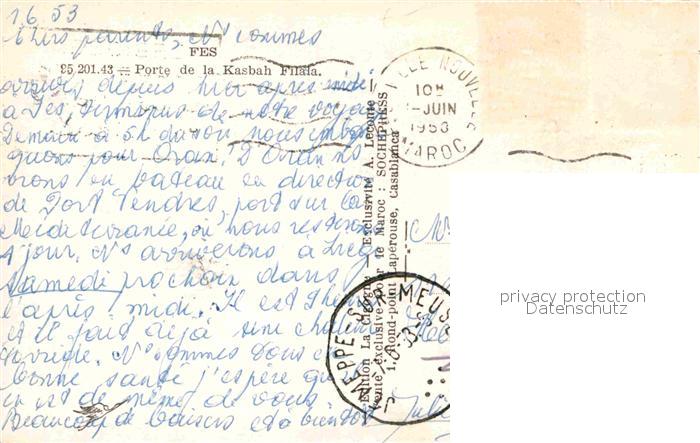 1.6.53
Chers parents, Ns sommes
FES
25.201.43 — Porte de la Kasbah Filala.
arrivés depuis hier après midi
à Fes, terminus de notre voyage
Demain à 5h du soir nous embar
quons pour Oran. D'Oran ns
irons en bateau en direction
de Port Vendres, port sur la
Méditerranée, où nous resterons
1 jour. Ns arriverons à Liège
samedi prochain dans
l'après midi. Il est 7 heures
et il fait déjà une chaleur
torride. Ns sommes tous en
bonne santé j'espère qu'il
en est de même de vous
Beaucoup de baisers et à bientôt
Juli
VILLE NOUVELLE
10H
1-JUIN
1953
MAROC
Edition La Cigogne — Exclusivité A. Leconte —
Vente exclusive pour le Maroc : SOCHEPRESS
1, Rond-point Lapérouse, Casablanca
JEMEPPE SUR MEUSE
privacy protection
Datenschutz